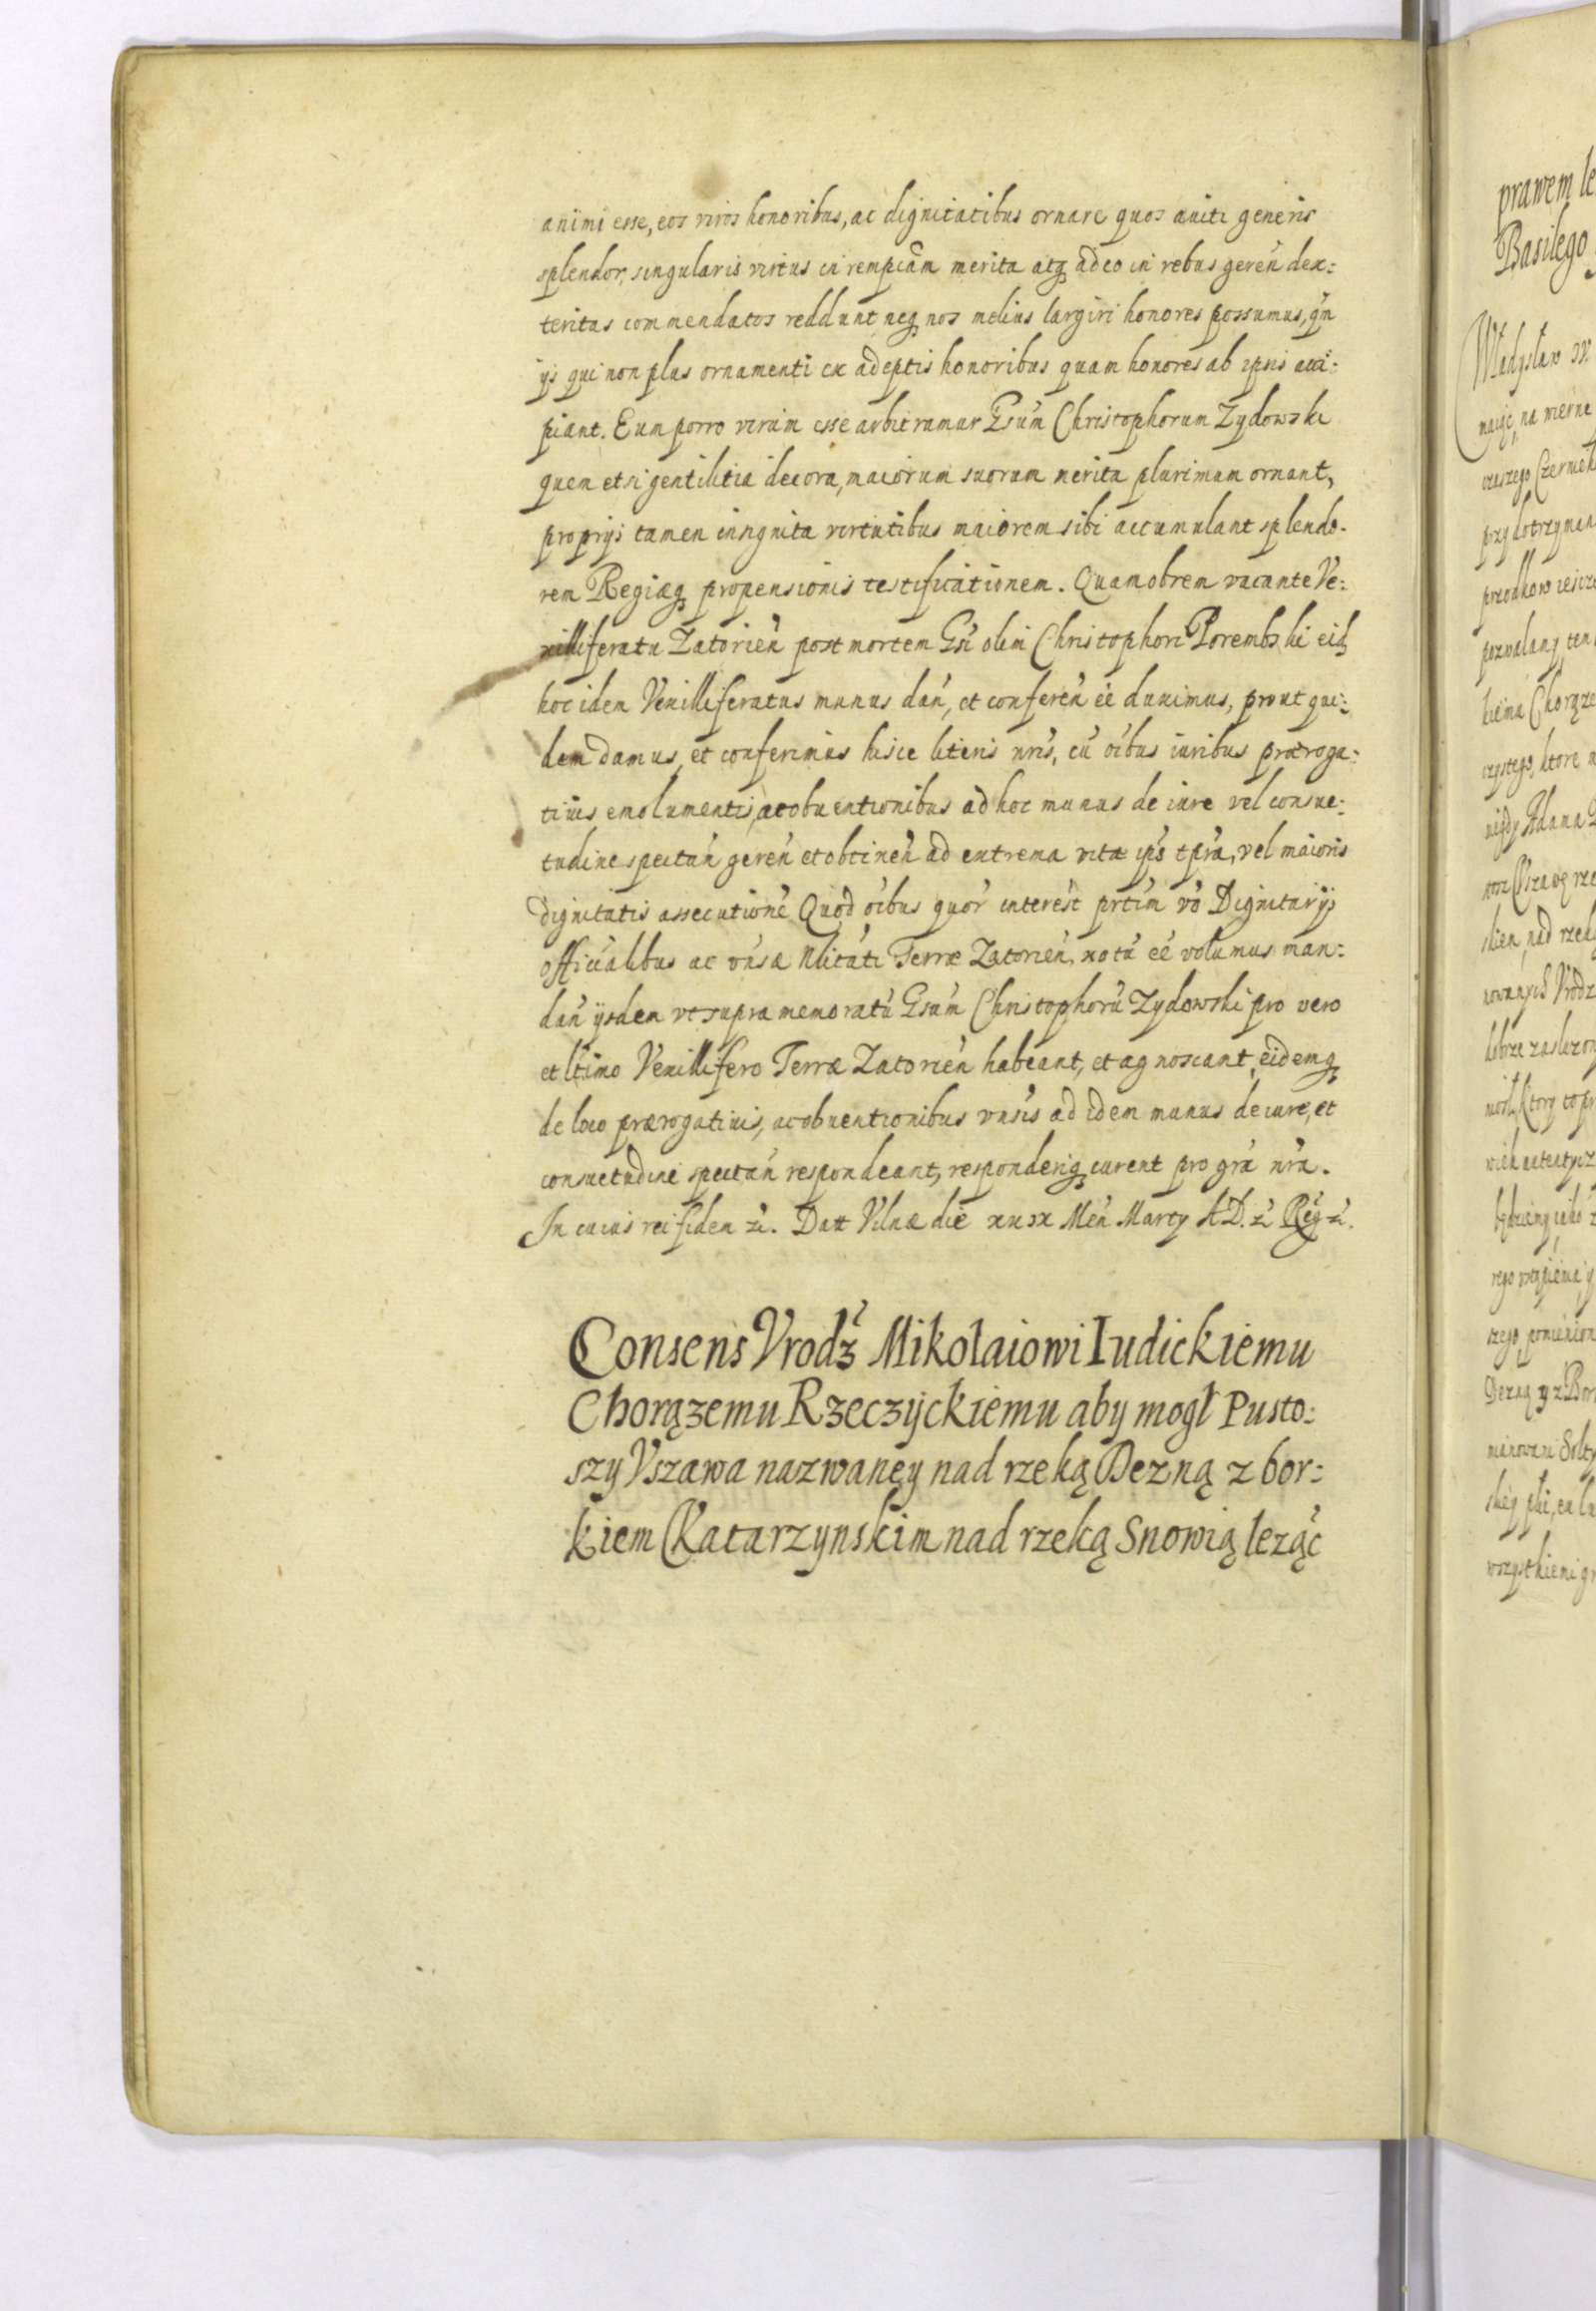 animi esse, eos viros honoribus, ac dignitatibus ornare quos auiti generis
splendor, singularis virtus in rempcam merita atq adeo in rebus geren dex:
teritas commendatos reddunt neq nos melius largiri honores possumus, qm
ijs qui non plus ornamenti ex adeptis honoribus quam honores ab ipsis acci:
piant. Eum porro virum esse arbitramur Gsum Christophorum Zydowski
quem etsi gentilitia decora, maiorum suorum merita plurimum ornant,
proprijs tamen insignita virtutibus maiorem sibi accumulant splendo-
rem Regiæq propensionis testificationem. Quamobrem vacante Ve:
xilliferatu Zatorien post mortem Gsi olim Christophori Porembski eid
hoc idem Vexilliferatus munus dan, et conferen ee duximus, prout qui:
dem damus, et conferimus hisce literis nris, cu oibus iuribus præroga:
tiuis emolumentis, ac obuentionibus ad hoc munus de iure vel consue:
tudine spectan geren et obtinen ad extrema vitæ ips tpra, vel maioris
dignitatis assecutione Quod oibus quor interest prtim vo Dignitarijs
officialibus ac vnsæ Nlitati Terræ Zatorien, notu ee volumus man:
dan ijsdem vt supra memoratu Gsum Christophoru Zydowski pro vero
et ltimo Vexillifero Terræ Zatorien habeant, et agnoscant, eidemq
de loco prærogatiuis, ac obuentionibus vnsis ad idem munus de iure, et
consuetudine spectan respondeant, responderiq curent pro gra nra.
In cuius rei fidem zc. Dat Vilnæ die xxix Men Marty A D. zc Reg zc.
Consens Vrodz Mikołaiowi Iudickiemu
Chorązemu Rzeczyckiemu aby mogł Pusto:
szy Vszawa nazwaney nad rzeką Dezną z bor:
kiem Katarzynskim nad rzeką Snowią leząc
prawem
Basilego
Władysław IV.
na wierne
Chorąze
ktore
Adama
nad
Vrodz
ktory